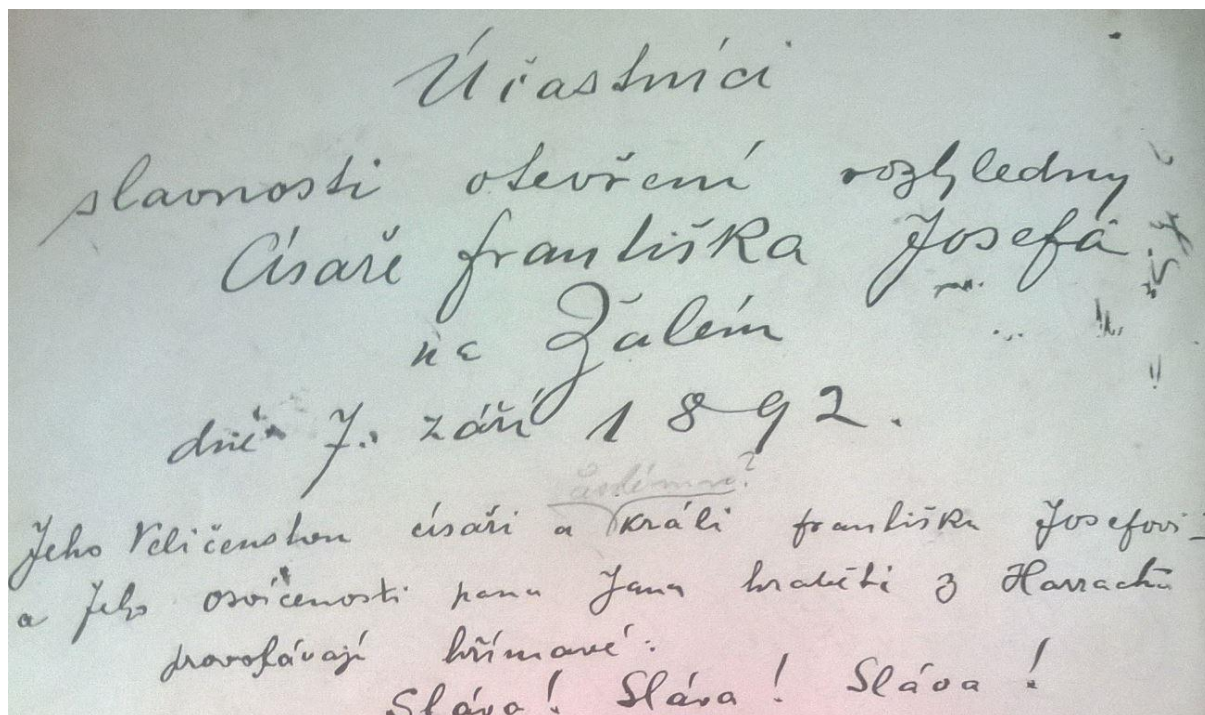 Účastníci
slavnosti otevření rozhledny
Císaře františka Josefa
na Žalém
dne 7. září 1892.
Jeho Veličenstvu císaři a králi františku Josefovi
a Jeho osvícenosti panu Janu hraběti z Harrachů
provolávají hřímavé:
Sláva! Sláva! Sláva!